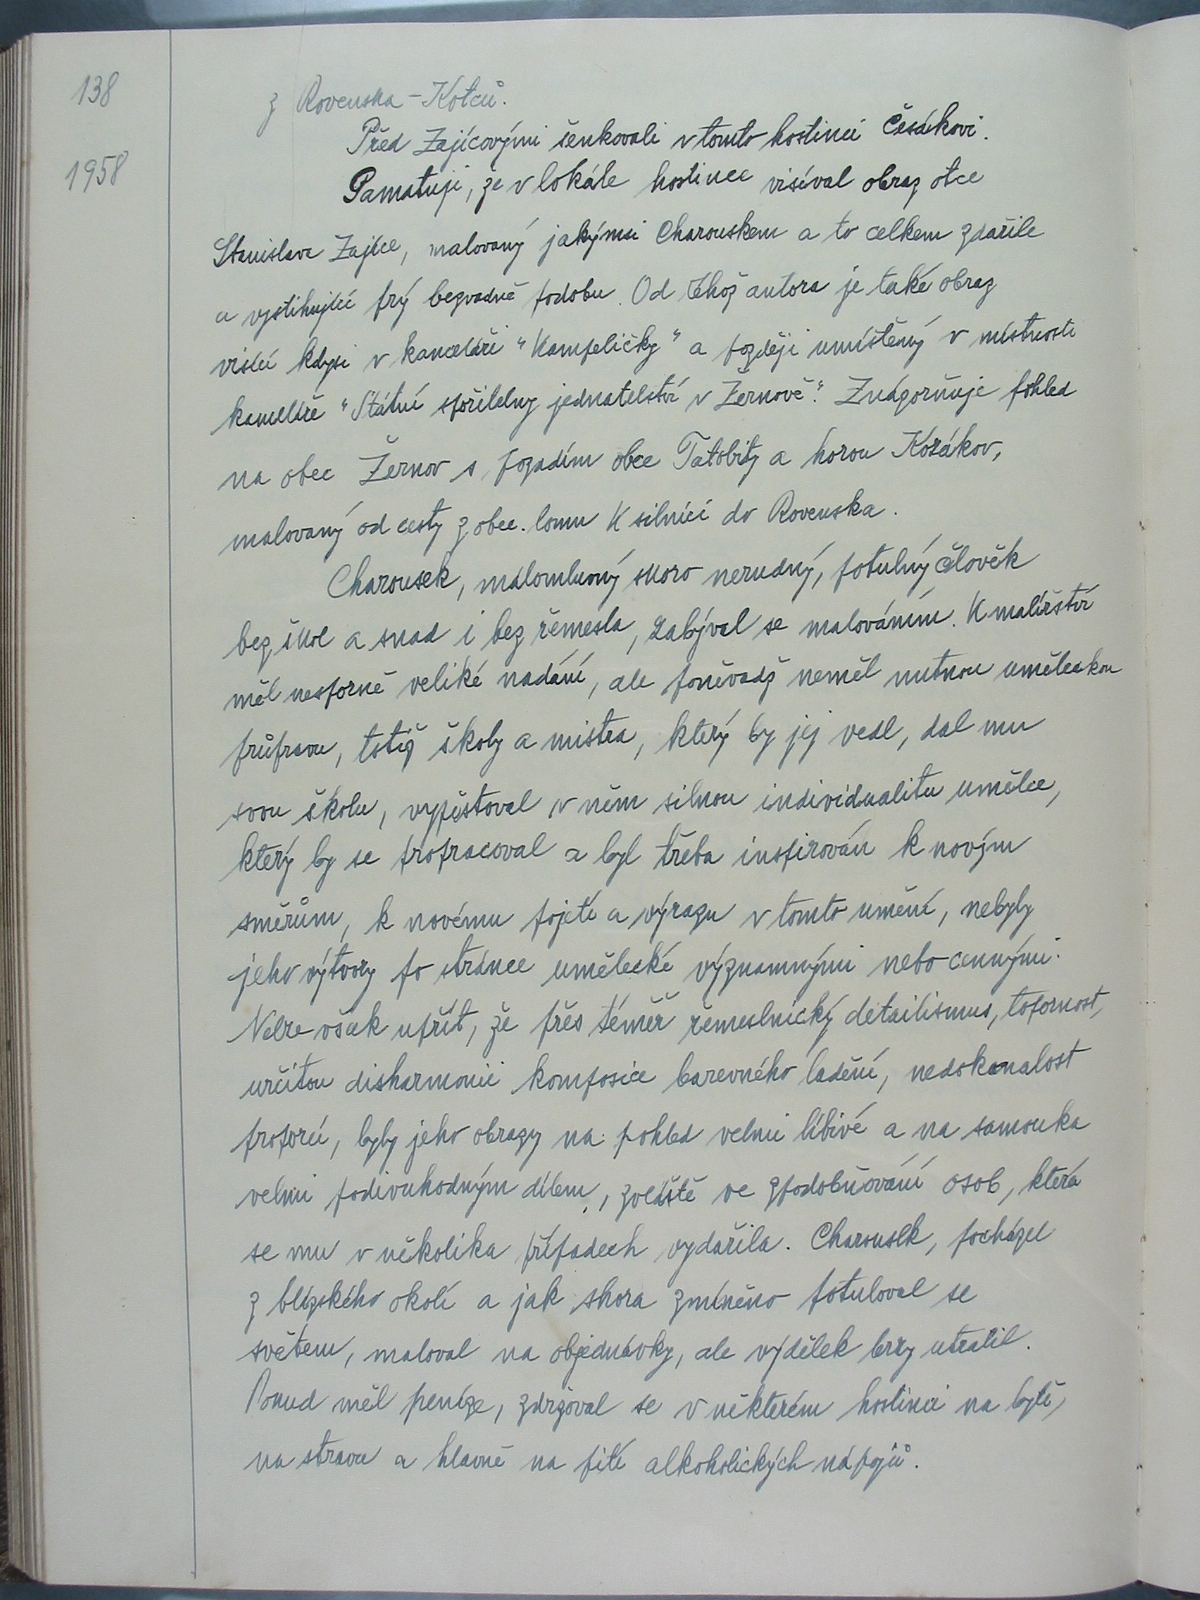 138
1958
z Rovenska-Kotců.
Před Zajícovými šenkovali v tomto hostinci Česákovi.
Pamatuji, že v lokále hostince visíval obraz otce
Stanislava Zajíce, malovaný jakýmsi Charouskem a to celkem zdařile
a vystihující prý bezvadně podobu. Od téhož autora je také obraz
visící kdysi v kanceláři "Kampeličky" a později umístěný v místnosti
kanceláře "Státní spořitelny jednatelství v Žernově." Znázorňuje pohled
na obec Žernov s pozadím obce Tatobity a horou Kozákov,
malovaný od cesty z obec. lomu k silnici do Rovenska.
Charousek, málomluvný skoro nerudný, potulný člověk
bez škol a snad i bez řemesla, zabýval se malováním. K malířství
měl nesporně veliké nadání, ale poněvadž neměl nutnou uměleckou
průpravu, totiž školy a mistra, který by jej vedl, dal mu
svou školu, vypěstoval v něm silnou individualitu umělce,
který by se propracoval a byl třeba inspirován k novým
směrům, k novému pojetí a výrazu v tomto umění, nebyly
jeho výtvory po stránce umělecké významnými nebo cennými.
Nelze však upřít, že přes téměř řemeslnický detailismus, toporност,
určitou disharmonii komposice barevného ladění, nedokonalost
proporcí, byly jeho obrazy na pohled velmi líbivé a na samouka
velmi podivuhodným dílem, zvláště ve zpodobňování osob, která
se mu v několika případech vydařila. Charousek, pocházel
z blízkého okolí a jak shora zmíněno potuloval se
světem, maloval na objednávky, ale výdělek brzy utratil.
Pokud měl peníze, zdržoval se v některém hostinci na bytě,
na stravu a hlavně na pití alkoholických nápojů.